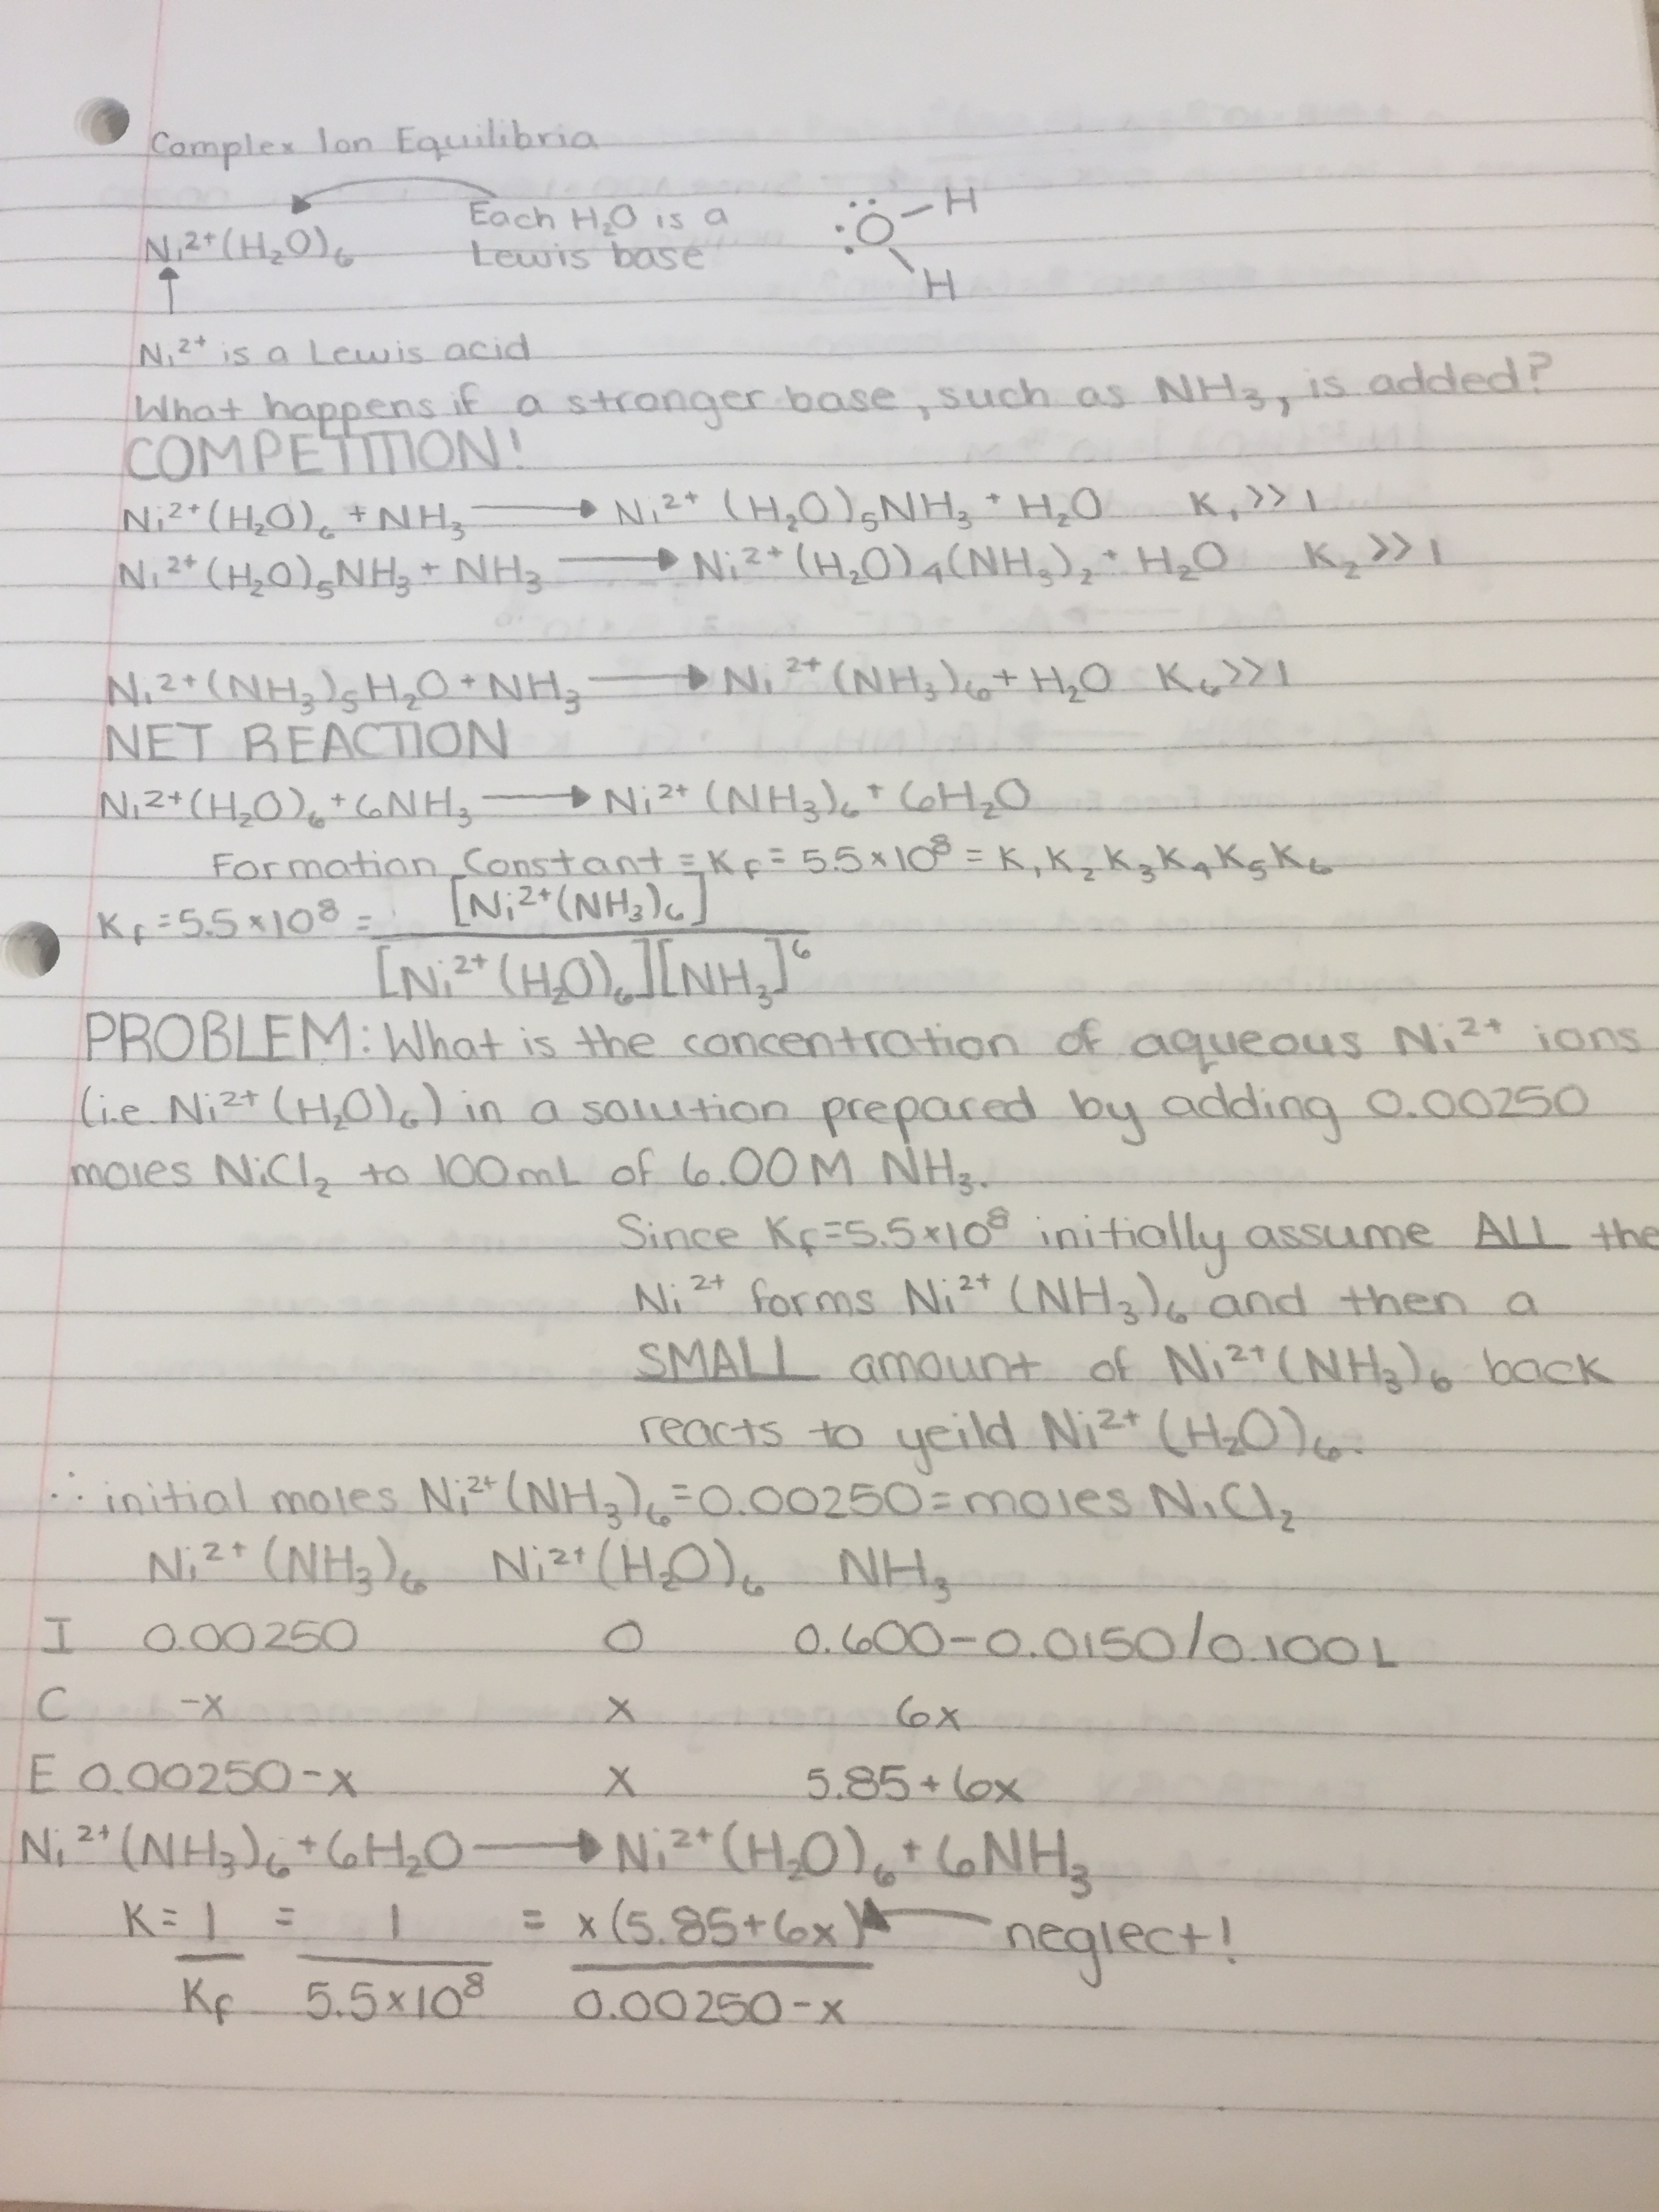 Complex Ion Equilibria
Ni²⁺(H₂O)₆ Each H₂O is a Lewis base :Ö–H H
Ni²⁺ is a Lewis acid
What happens if a stronger base, such as NH₃, is added?
COMPETITION!
Ni²⁺(H₂O)₆ + NH₃ ⟶ Ni²⁺(H₂O)₅NH₃ + H₂O K₁ >> 1
Ni²⁺(H₂O)₅NH₃ + NH₃ ⟶ Ni²⁺(H₂O)₄(NH₃)₂ + H₂O K₂ >> 1
Ni²⁺(NH₃)₅H₂O + NH₃ ⟶ Ni²⁺(NH₃)₆ + H₂O K₆ >> 1
NET REACTION
Ni²⁺(H₂O)₆ + 6NH₃ ⟶ Ni²⁺(NH₃)₆ + 6H₂O
Formation Constant ≡ K_f = 5.5 × 10⁸ = K₁K₂K₃K₄K₅K₆
K_f = 5.5 × 10⁸ = [Ni²⁺(NH₃)₆]
[Ni²⁺(H₂O)₆][NH₃]⁶
PROBLEM: What is the concentration of aqueous Ni²⁺ ions
(i.e Ni²⁺(H₂O)₆) in a solution prepared by adding 0.00250
moles NiCl₂ to 100mL of 6.00M NH₃.
Since K_f = 5.5×10⁸ initially assume ALL the
Ni²⁺ forms Ni²⁺(NH₃)₆ and then a
SMALL amount of Ni²⁺(NH₃)₆ back
reacts to yeild Ni²⁺(H₂O)₆.
∴ initial moles Ni²⁺(NH₃)₆ = 0.00250 = moles NiCl₂
Ni²⁺(NH₃)₆ Ni²⁺(H₂O)₆ NH₃
I 0.00250 0 0.600-0.0150/0.100L
C -x x 6x
E 0.00250-x x 5.85+6x
Ni²⁺(NH₃)₆ + 6H₂O ⟶ Ni²⁺(H₂O)₆ + 6NH₃
K = 1 = 1 = x(5.85+6x) neglect!
K_f 5.5×10⁸ 0.00250-x